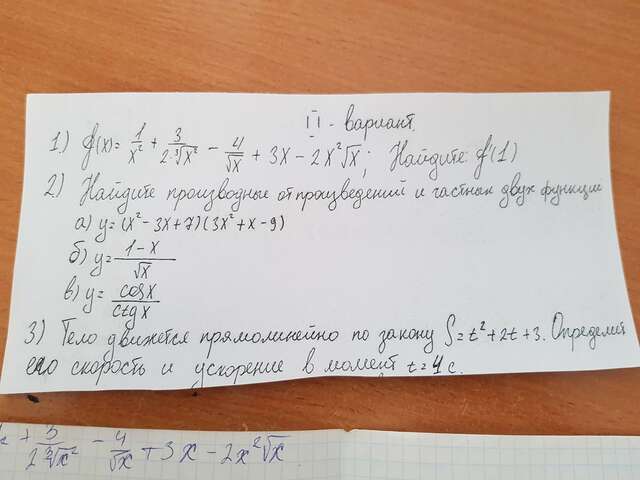 II - вариант.
1.) f(x) = 1/x² + 3/(2·∛x²) − 4/√x + 3x − 2x²√x; Найдите: f(1)
2) Найдите производные от произведений и частных двух функции
а) y=(x²−3x+7)(3x²+x−9)
б) y= (1−x)/√x
в) y= cosx/ctgx
3) Тело движется прямолинейно по закону S=t²+2t+3. Определит
его скорость и ускорение в момент t=4 с.
+ 3/(2∛x²) − 4/√x + 3x − 2x²√x